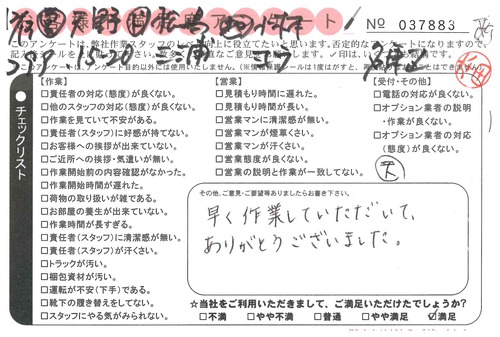 No 037883
このアンケートは、弊社作業スタッフのレベル向上に役立てたいと思います。否定的なアンケートになりますので、
チェックリスト
【作業】
□責任者の対応(態度)が良くない。
□他のスタッフの対応(態度)が良くない。
□作業を見ていて不安がある。
□責任者(スタッフ)に好感が持てない。
□お客様への挨拶が出来ていない。
□ご近所への挨拶・気遣いが無い。
□作業開始前の内容確認がなかった。
□作業開始時間が遅れた。
□荷物の取り扱いが雑である。
□お部屋の養生が出来ていない。
□作業時間が長すぎる。
□責任者(スタッフ)に清潔感が無い。
□責任者(スタッフ)が汗くさい。
□トラックが汚い。
□梱包資材が汚い。
□運転が不安(下手)である。
□靴下の履き替えをしてない。
□スタッフにやる気がみられない。
【営業】
□見積もり時間に遅れた。
□見積もり時間が長い。
□営業マンに清潔感が無い。
□営業マンが煙草くさい。
□営業マンが汗くさい。
□営業態度が良くない。
□営業の説明と作業が一致してない。
【受付・その他】
□電話の対応が良くない。
□オプション業者の説明
・作業が良くない。
□オプション業者の対応
(態度)が良くない。
天
その他、ご意見・ご要望等ありましたらお書き下さい。
早く作業していただいて、
ありがとうございました。
☆当社をご利用いただきまして、ご満足いただけたでしょうか?
□不満 □やや不満 □普通 □やや満足 ☑満足